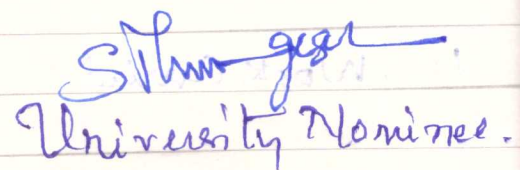 University Nominee.